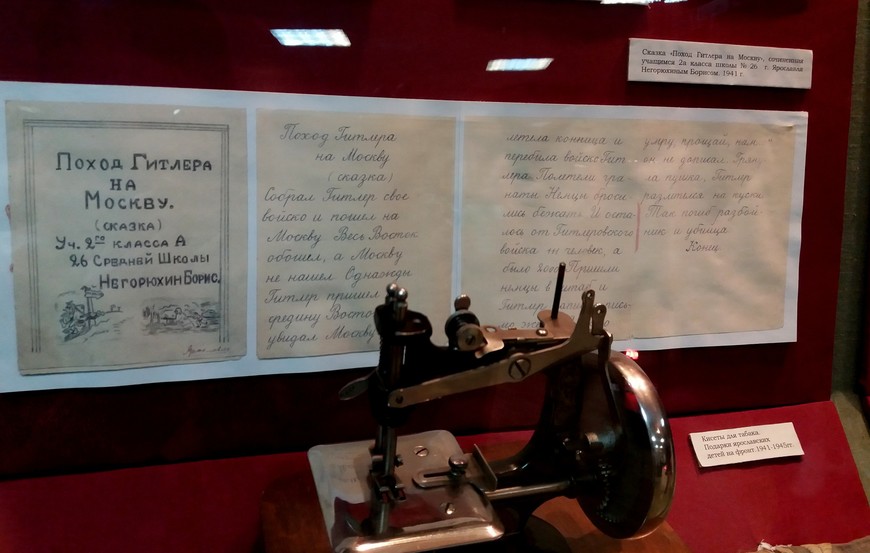 Сказка «Поход Гитлера на Москву», сочиненная
учащимся 2а класса школы № 26 г. Ярославля
Негорюхиным Борисом. 1941 г.
Поход Гитлера
на
Москву.
(сказка)
Уч. 2го класса А
26 Средней Школы
Негорюхин Борис.
Поход Гитлера
на Москву
(сказка)
Собрал Гитлер свое
войско и пошел на
Москву Весь Восток
обошел, а Москву
не нашел Однажди
Гитлер пришел
средину Восто
увидал Москву
летела конница и
перебила войско Гит-
лера Полетели гра
наты Немцы броси
лись бежать И оста
лось от Гитлеровского
войска человек, а
было 2000 Пришли
немцы в штаб и
Гитлер
умру, прощай, пом..."
он не дописал Гря
ла пушка, Гитлер
разлетелся на куски
Так погиб разбой
ник и убийца
Конец
Кисеты для табака.
Подарки ярославских
детей на фронт. 1941-1945гг.